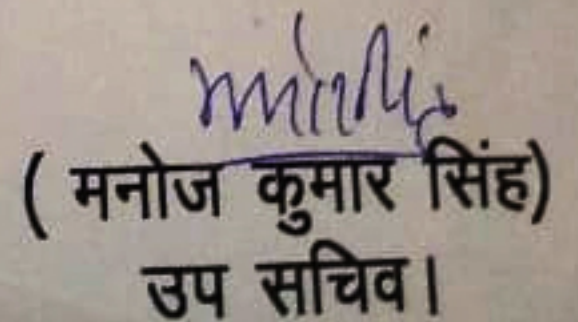 ( मनोज कुमार सिंह)
उप सचिव।